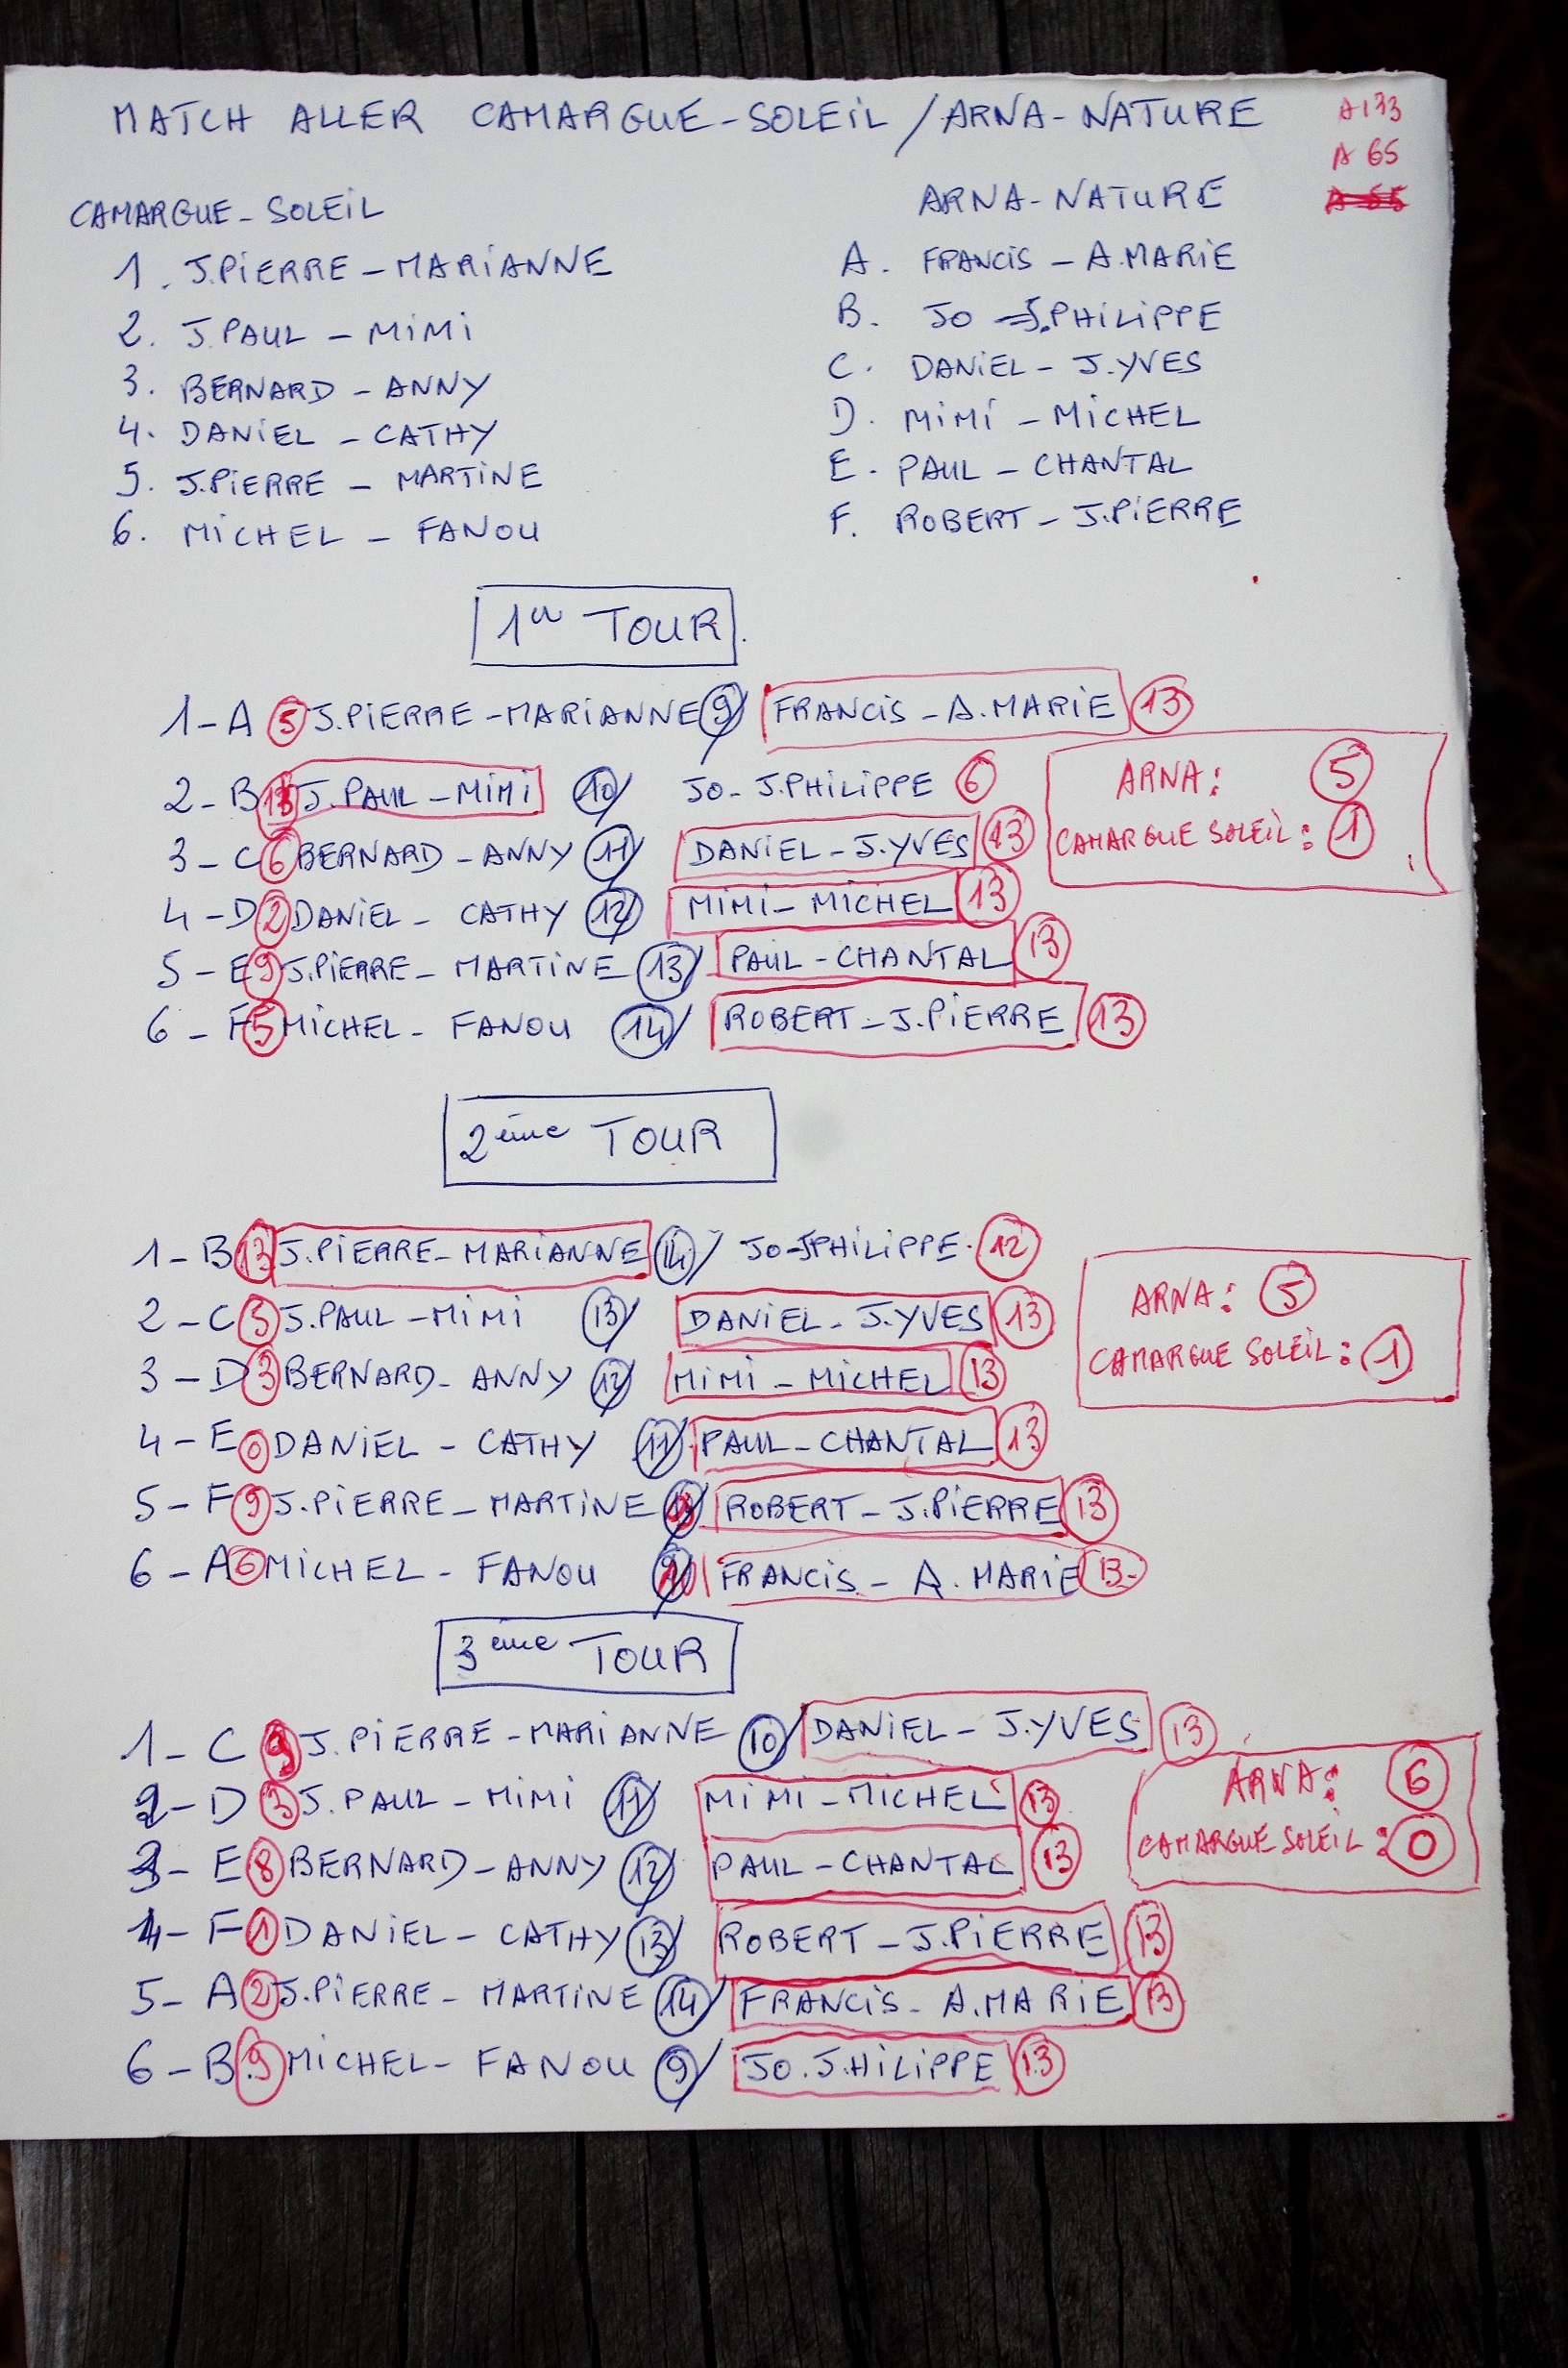 MATCH ALLER CAMARGUE-SOLEIL / ARNA-NATURE
A 133
A 65
CAMARGUE-SOLEIL
1. J.PIERRE - MARIANNE
2. J.PAUL - MIMI
3. BERNARD - ANNY
4. DANIEL - CATHY
5. J.PIERRE - MARTINE
6. MICHEL - FANOU
ARNA-NATURE
A. FRANCIS - A.MARIE
B. JO - J.PHILIPPE
C. DANIEL - J.YVES
D. MIMI - MICHEL
E. PAUL - CHANTAL
F. ROBERT - J.PIERRE
1er TOUR.
1-A 5 J.PIERRE-MARIANNE 9/ FRANCIS - A.MARIE 13
2-B 13 J.PAUL-MIMI 10/ JO-J.PHILIPPE 6
3-C 6 BERNARD-ANNY 11/ DANIEL-J.YVES 13
4-D 2 DANIEL-CATHY 12/ MIMI-MICHEL 13
5-E 9 J.PIERRE-MARTINE 13/ PAUL-CHANTAL 13
6-F 5 MICHEL-FANOU 14/ ROBERT-J.PIERRE 13
ARNA: 5
CAMARGUE SOLEIL: 1
2ème TOUR
1-B 13 J.PIERRE-MARIANNE 14/ JO-J.PHILIPPE. 12
2-C 3 J.PAUL-MIMI 13/ DANIEL-J.YVES 13
3-D 3 BERNARD-ANNY 12/ MIMI-MICHEL 13
4-E 0 DANIEL-CATHY 11/ PAUL-CHANTAL 13
5-F 9 J.PIERRE-MARTINE / ROBERT-J.PIERRE 13
6-A 6 MICHEL-FANOU 9/ FRANCIS-A.MARIE 13
ARNA: 5
CAMARGUE SOLEIL: 1
3ème TOUR
1-C 9 J.PIERRE-MARIANNE 10/ DANIEL-J.YVES 13
2-D 3 J.PAUL-MIMI 11/ MIMI-MICHEL 13
3-E 8 BERNARD-ANNY 12/ PAUL-CHANTAL 13
4-F 1 DANIEL-CATHY 13/ ROBERT-J.PIERRE 13
5-A 2 J.PIERRE-MARTINE 14/ FRANCIS-A.MARIE 13
6-B 9 MICHEL-FANOU 9/ JO.J.HILIPPE 13
ARNA: 6
CAMARGUE SOLEIL: 0